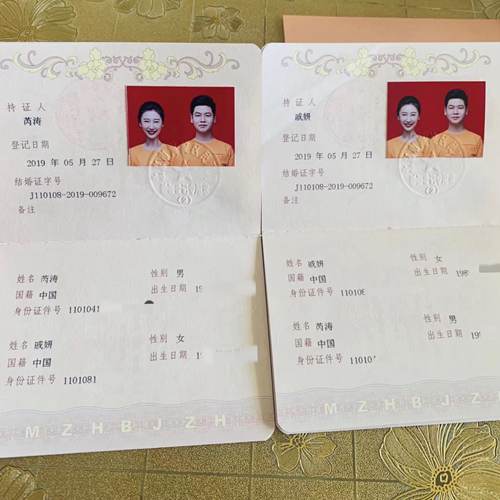 持证人
芮涛
登记日期
2019 年 05 月 27 日
结婚证字号
J110108-2019-009672
备注
姓名 芮涛 性别 男
国籍 中国 出生日期 19
身份证件号 1101041
姓名 戚妍 性别 女
国籍 中国 出生日期 19
身份证件号 1101081
M Z H B J Z H
持证人
戚妍
登记日期
2019 年 05 月 27 日
结婚证字号
J110108-2019-009672
备注
姓名 戚妍 性别 女
国籍 中国 出生日期 198
身份证件号 11010
姓名 芮涛 性别 男
国籍 中国 出生日期 19
身份证件号 11010
M Z H B J Z H